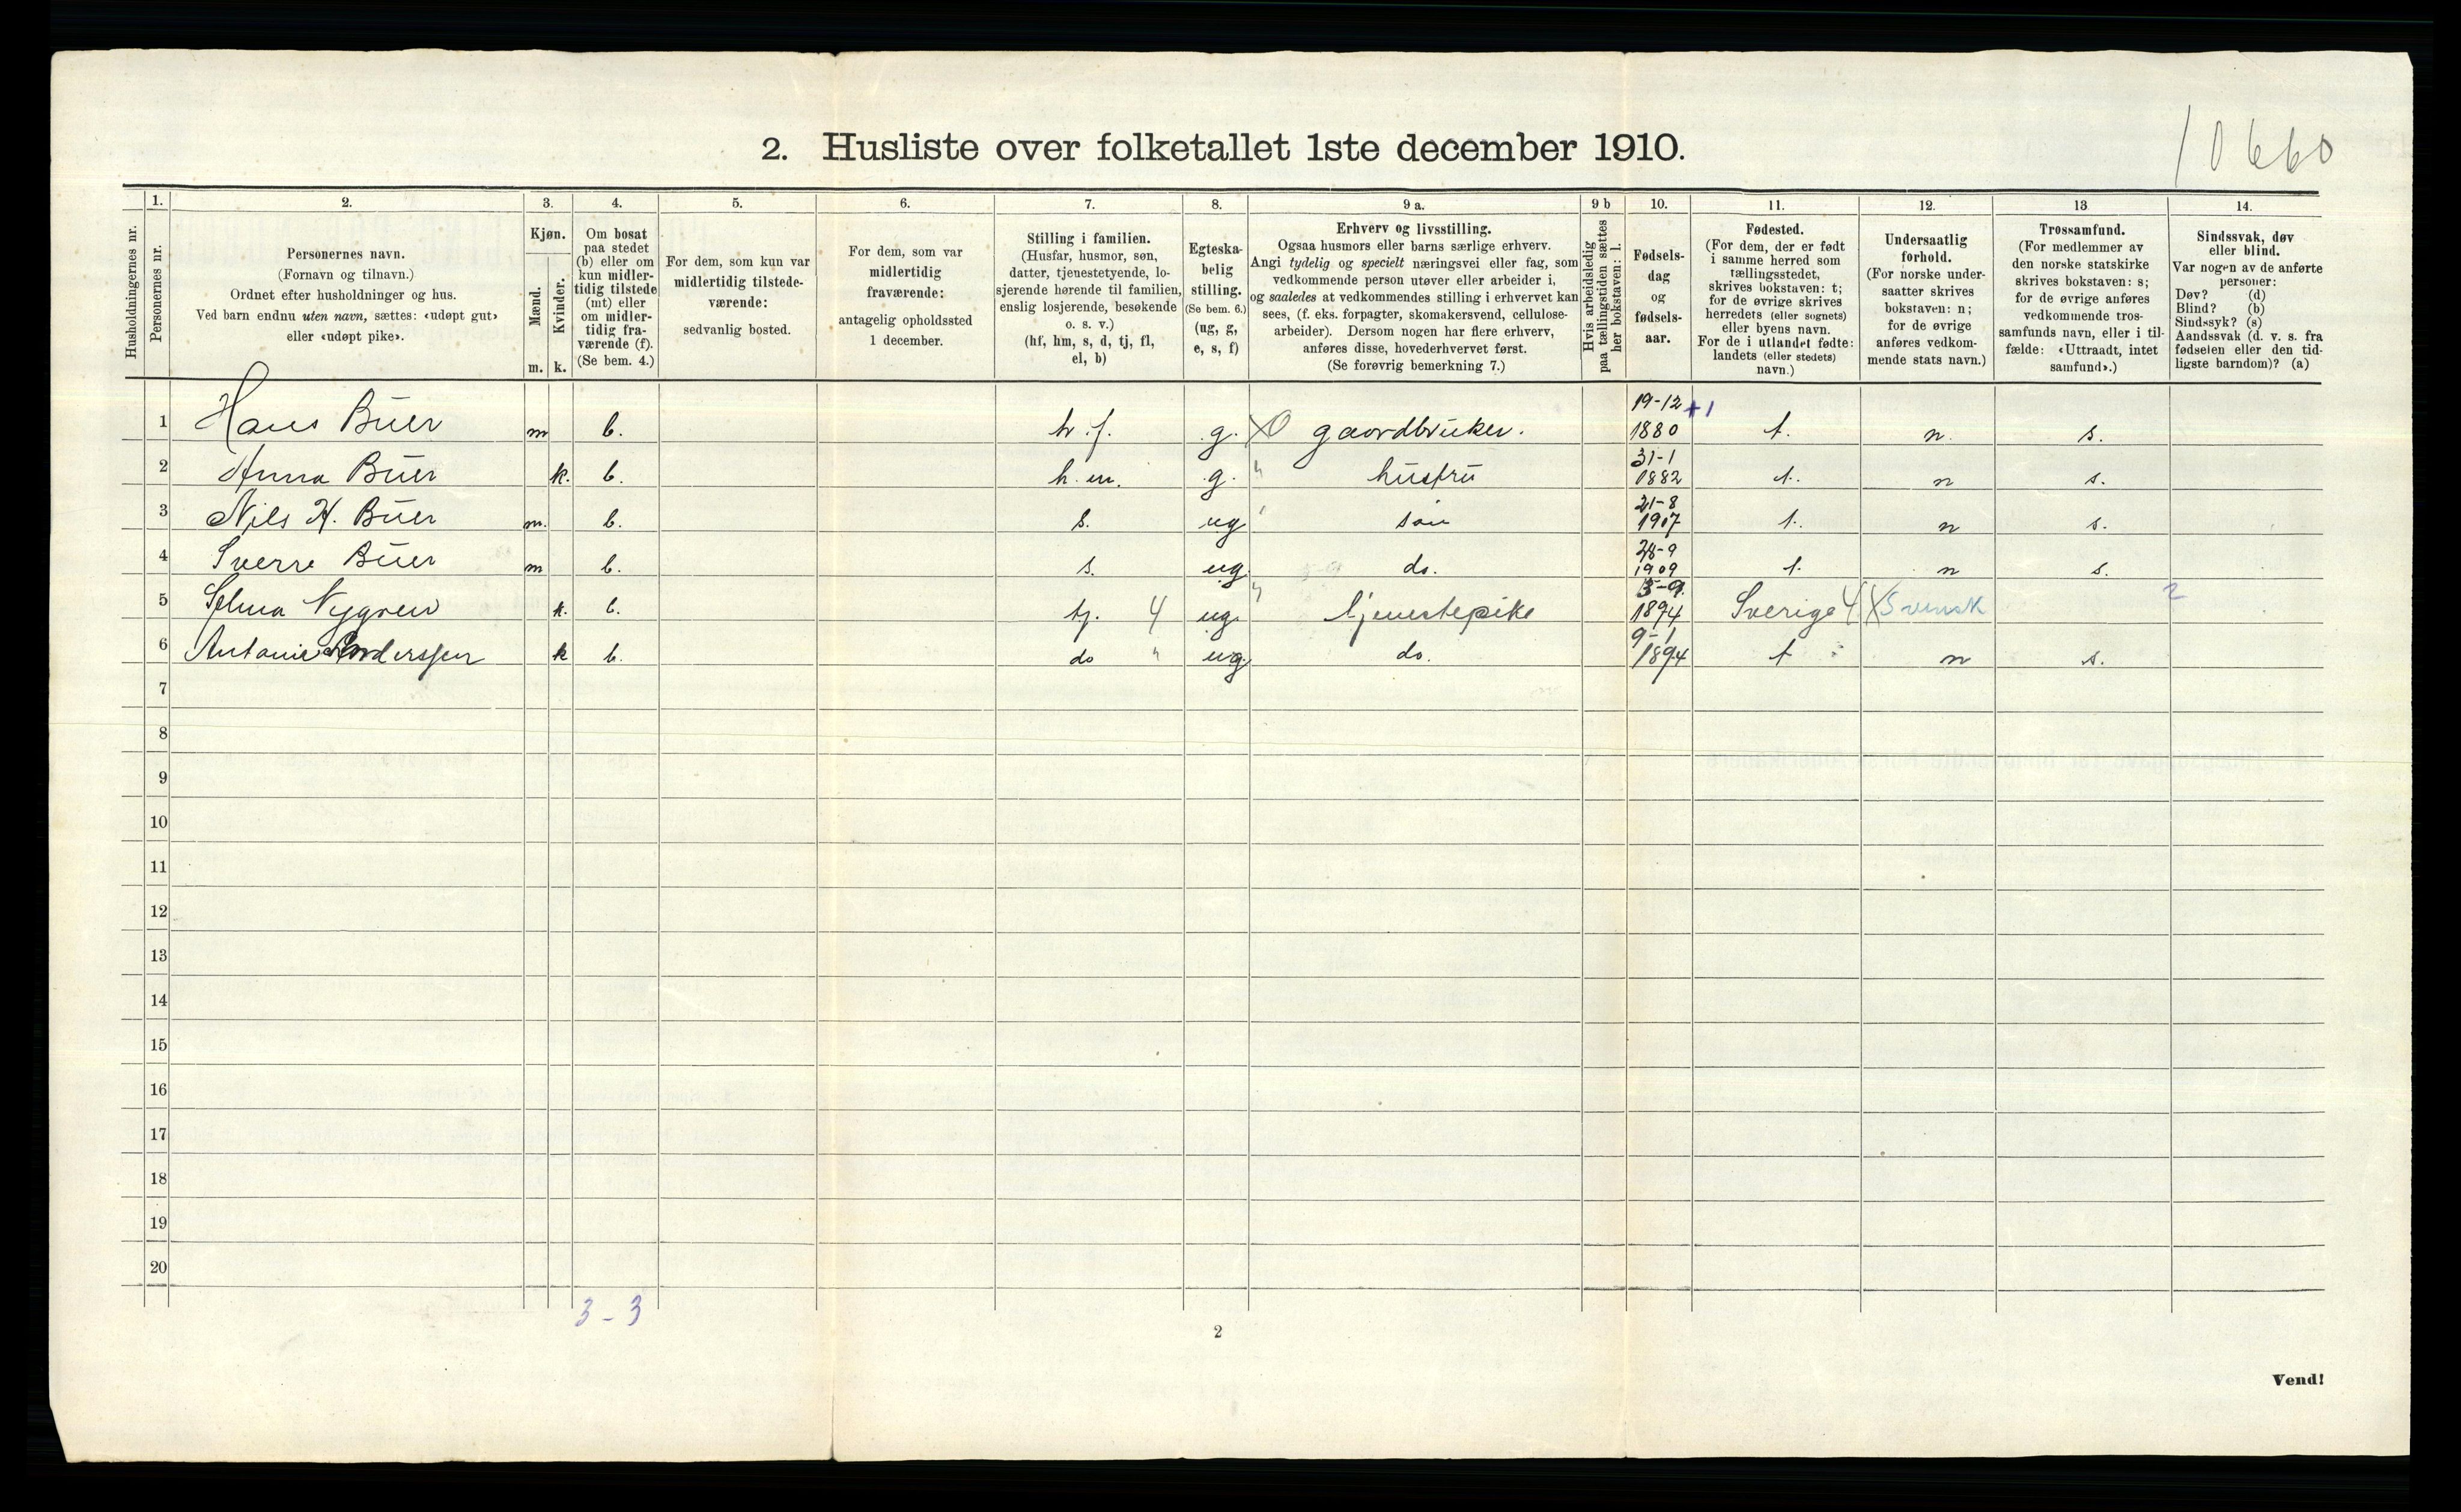 10660
2. Husliste over folketallet 1ste december 1910.
Husholdningernes nr.
1.
Personernes nr.
2.
Personernes navn.
(Fornavn og tilnavn.)
Ordnet efter husholdninger og hus.
Ved barn endnu uten navn, sættes: «udøpt gut»
eller «udøpt pike».
3.
Kjøn.
Mænd.
Kvinder.
m. k.
4.
Om bosat
paa stedet
(b) eller om
kun midler-
tidig tilstede
(mt) eller
om midler-
tidig fra-
værende (f).
(Se bem. 4.)
5.
For dem, som kun var
midlertidig tilstede-
værende:
sedvanlig bosted.
6.
For dem, som var
midlertidig
fraværende:
antagelig opholdssted
1 december.
7.
Stilling i familien.
(Husfar, husmor, søn,
datter, tjenestetyende, lo-
sjerende hørende til familien,
enslig losjerende, besøkende
o. s. v.)
(hf, hm, s, d, tj, fl,
el, b)
8.
Egteska-
belig
stilling.
(Se bem. 6.)
(ug, g,
e, s, f)
9 a.
Erhverv og livsstilling.
Ogsaa husmors eller barns særlige erhverv.
Angi tydelig og specielt næringsvei eller fag, som
vedkommende person utøver eller arbeider i,
og saaledes at vedkommendes stilling i erhvervet kan
sees, (f. eks. forpagter, skomakersvend, cellulose-
arbeider). Dersom nogen har flere erhverv,
anføres disse, hovederhvervet først.
(Se forøvrig bemerkning 7.)
9 b
Hvis arbeidsledig
paa tællingstiden sættes
her bokstaven: l.
10.
Fødsels-
dag
og
fødsels-
aar.
11.
Fødested.
(For dem, der er født
i samme herred som
tællingsstedet,
skrives bokstaven: t;
for de øvrige skrives
herredets (eller sognets)
eller byens navn.
For de i utlandet fødte:
landets (eller stedets)
navn.)
12.
Undersaatlig
forhold.
(For norske under-
saatter skrives
bokstaven: n;
for de øvrige
anføres vedkom-
mende stats navn.)
13
Trossamfund.
(For medlemmer av
den norske statskirke
skrives bokstaven: s;
for de øvrige anføres
vedkommende tros-
samfunds navn, eller i til-
fælde: «Uttraadt, intet
samfund».)
14.
Sindssvak, døv
eller blind.
Var nogen av de anførte
personer:
Døv? (d)
Blind? (b)
Sindssyk? (s)
Aandssvak (d. v. s. fra
fødselen eller den tid-
ligste barndom)? (a)
1 Hans Buer m b. h.f. g. X0 gaardbruker. 19-12 +1 1880 t. n. s.
2 Anna Buer k. b. h.m. g. " hustru 31-1 1882 t. n s.
3 Nils H. Buer m. b. s. ug søn 21-8 1907 t. n s.
4 Sverre Buer m b. s. ug do. 28-9 1909 t. n s.
5 Selma Nygren k. b. tj. 4 ug. " tjenestepike 1894 Sverige 4 X Svensk 2
6 Anderssen k b. do " ug. do. 9-1 1894 t n s.
7
8
9
10
11
12
13
14
15
16
17
18
19
20
3 - 3
2
Vend!